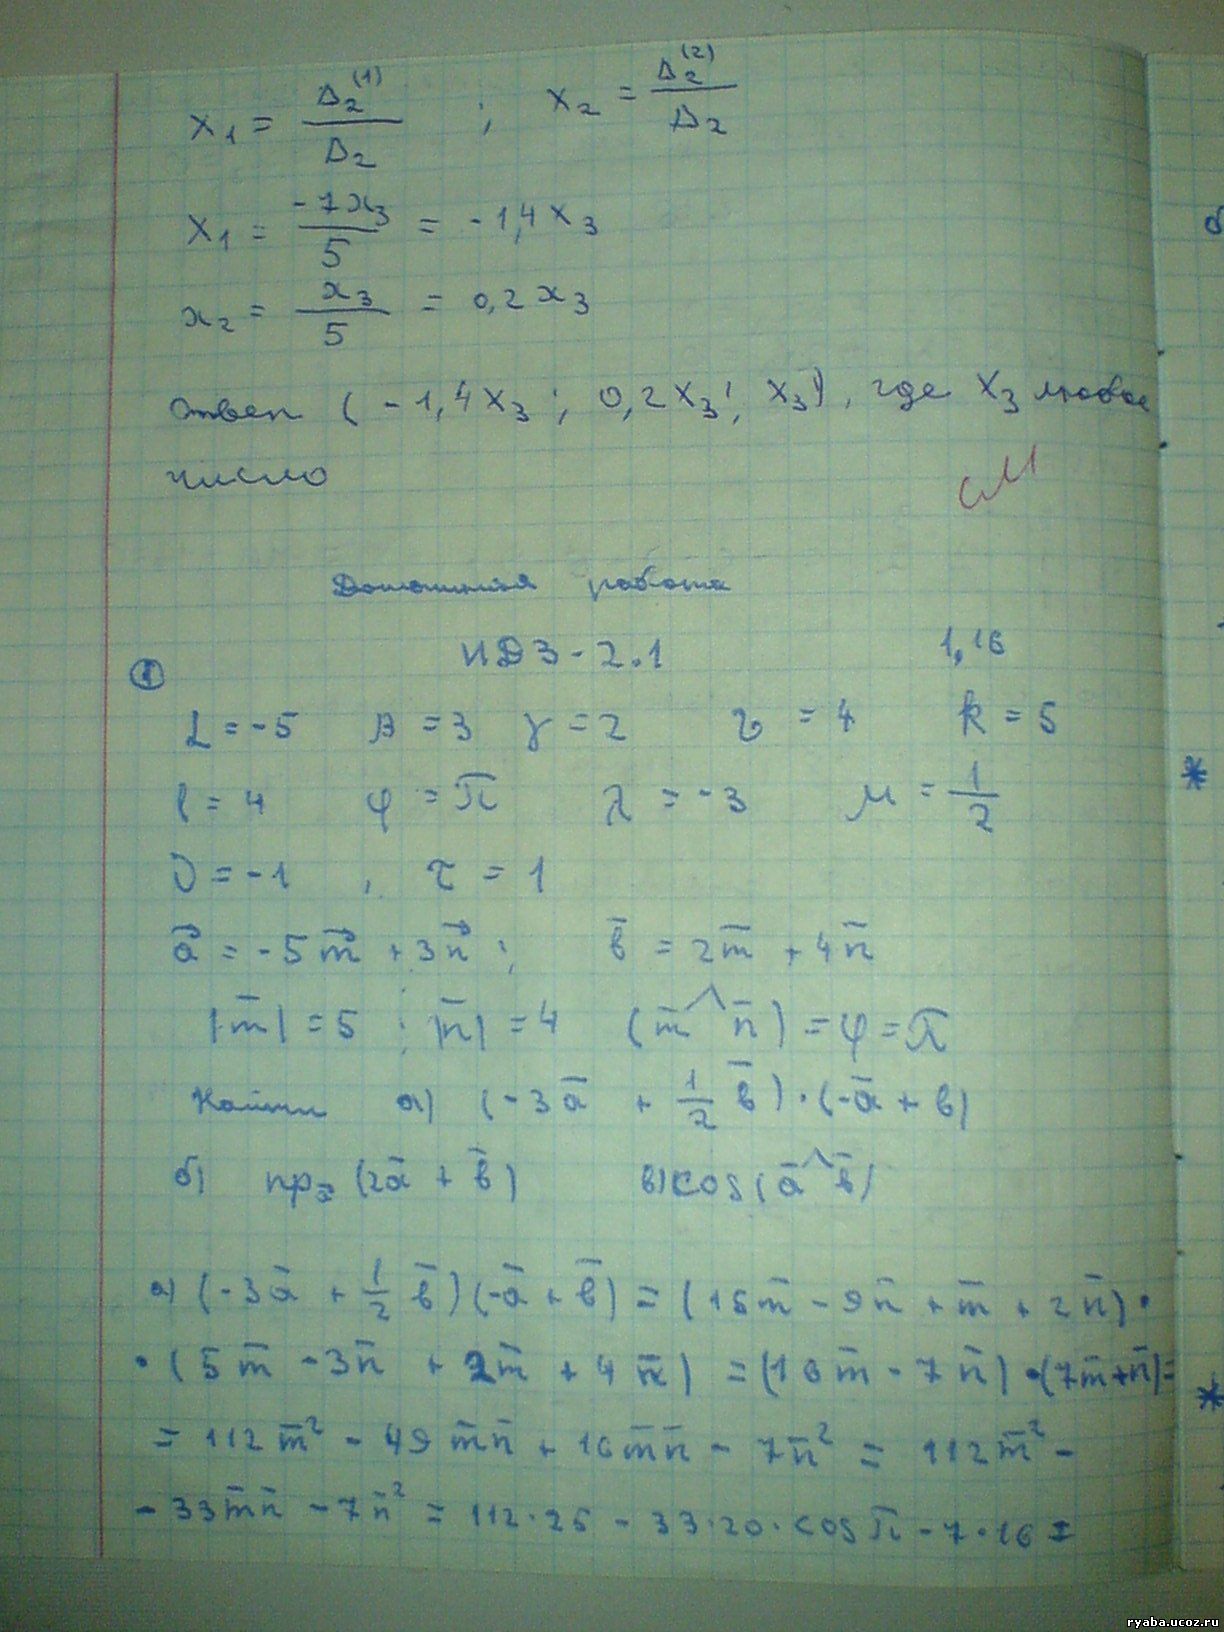 x₁ = Δ₂⁽¹⁾ / Δ₂ ; x₂ = Δ₂⁽²⁾ / Δ₂
x₁ = -7x₃ / 5 = -1,4x₃
x₂ = x₃ / 5 = 0,2x₃
Ответ (-1,4x₃ ; 0,2x₃ ; x₃), где x₃ любое
число
см
Домашняя работа
ИДЗ - 2.1 1,16
① 
α = -5 β = 3 γ = 2 δ = 4 k = 5
l = 4 φ = π λ = -3 μ = 1/2
ν = -1 , τ = 1
a⃗ = -5m⃗ + 3n⃗ ; b̄ = 2m̄ + 4n̄
|m̄| = 5 ; |n̄| = 4 (m̄ ^ n̄) = φ = π
Найти а) (-3ā + 1/2 b̄) · (-ā + b)
б) пр (2ā + b̄) в) cos(ā ^ b̄)
а) (-3ā + 1/2 b̄)(-ā + b̄) = (15m̄ - 9n̄ + m̄ + 2n̄) ·
· (5m̄ - 3n̄ + 2m̄ + 4n̄) = (16m̄ - 7n̄) · (7m̄ + n̄) =
= 112m̄² - 49m̄n̄ + 16m̄n̄ - 7n̄² = 112m̄² -
- 33m̄n̄ - 7n̄² = 112·25 - 33·20·cos π - 7·16 =
ryaba.ucoz.ru